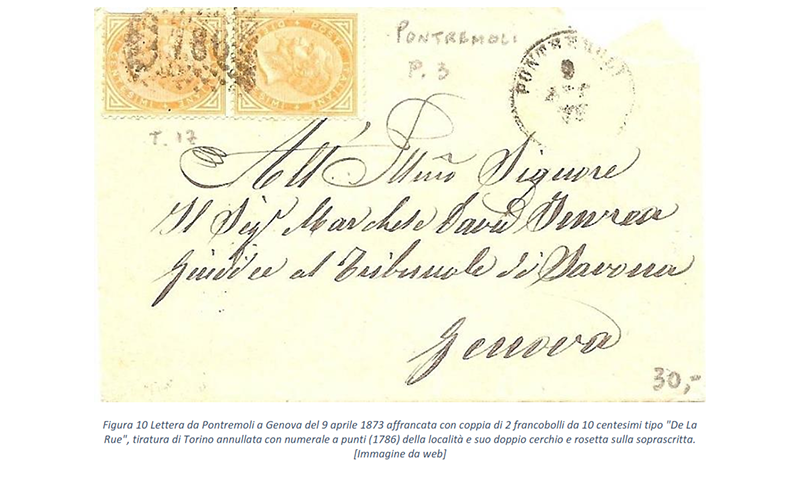 178
PONTREMOLI
P. 3
PONTREMOLI
9
T. 17
All'Illmo Signore
Il Sigr Marchese David Invrea
Giudice al Tribunale di Savona
Genova
30,-
Figura 10 Lettera da Pontremoli a Genova del 9 aprile 1873 affrancata con coppia di 2 francobolli da 10 centesimi tipo "De La
Rue", tiratura di Torino annullata con numerale a punti (1786) della località e suo doppio cerchio e rosetta sulla soprascritta.
[Immagine da web]